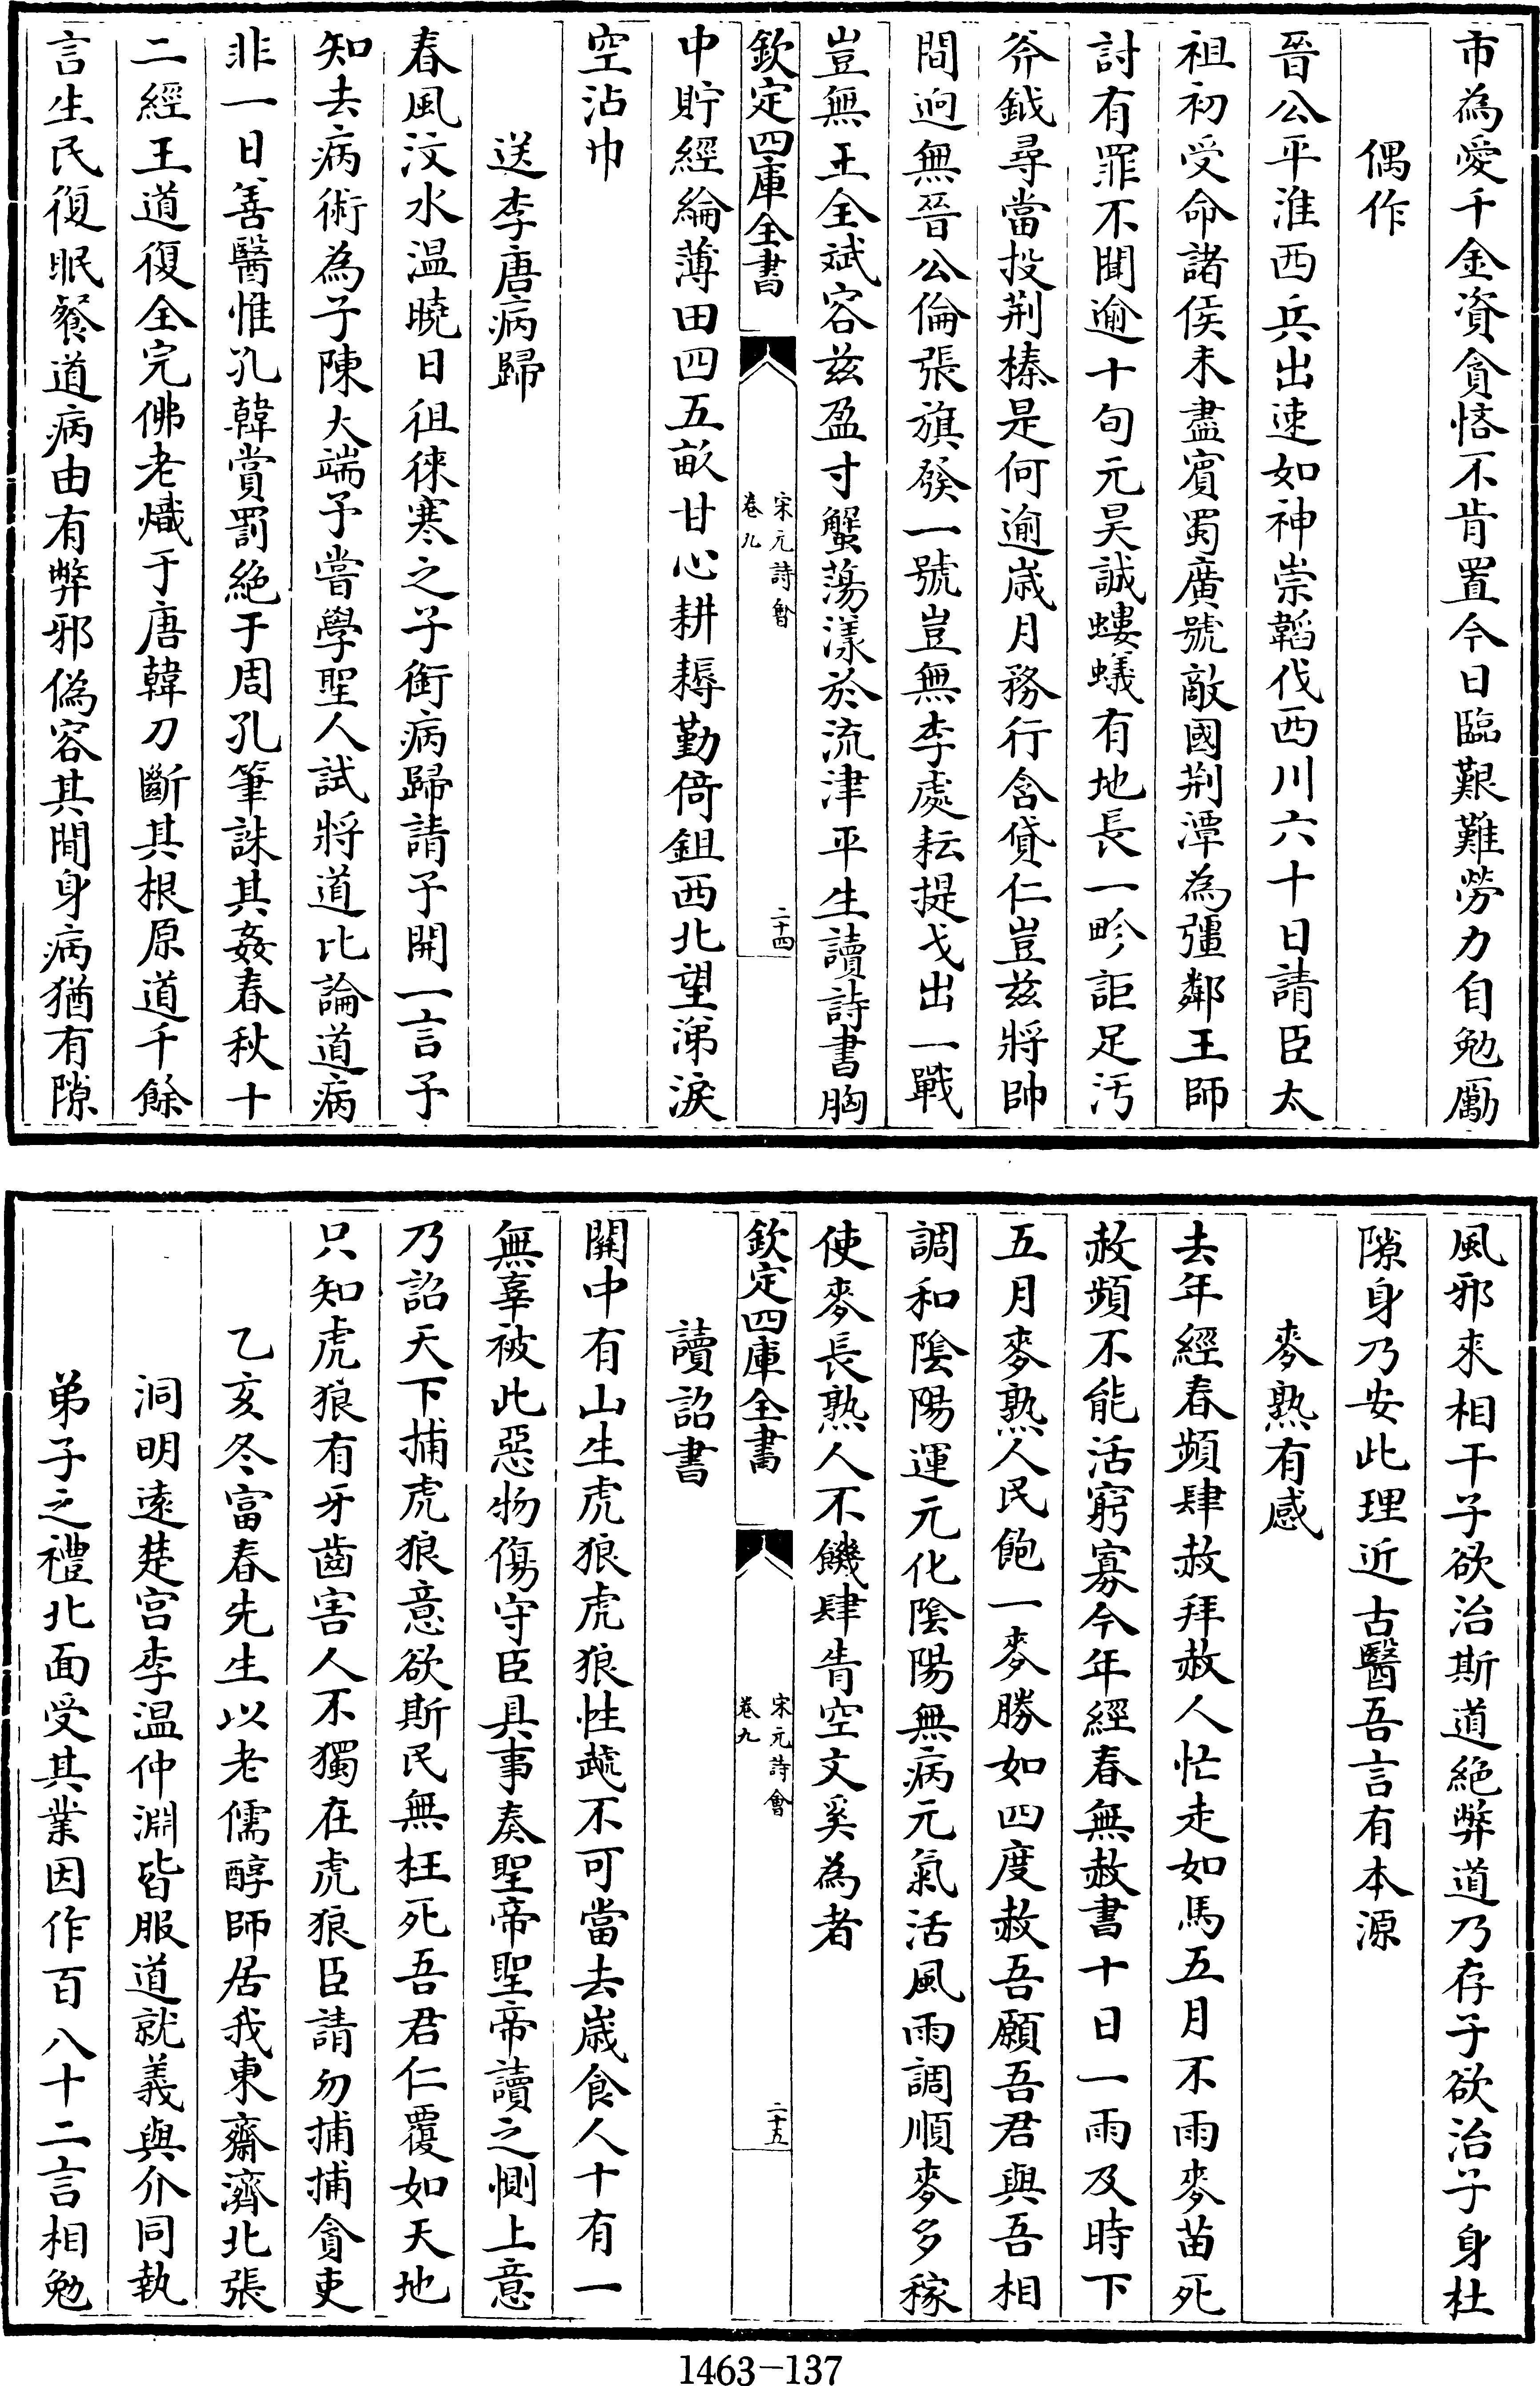 市為愛千金資貪悋不肯置今日臨艱難勞力自勉勵
偶作
晉公平淮西兵出速如神崇韜伐西川六十日請臣太
祖初受命諸侯未盡賓蜀廣號敵國荆潭為彊鄰王師
討有罪不聞逾十旬元昊誠螻蟻有地長一畛詎足汚
斧鉞尋當投荆榛是何逾歳月務行含貸仁豈兹將帥
間逈無晉公倫張旗發一號豈無李處耘提戈出一戰
豈無王全斌容兹盈寸蟹蕩漾於流津平生讀詩書胸
欽定四庫全書
宋元詩會
卷九
二十四
中貯經綸薄田四五畝甘心耕耨勤倚鉏西北望涕淚
空沾巾
送李唐病歸
春風汶水温曉日徂徠寒之子銜病歸請予開一言子
知去病術為子陳大端予嘗學聖人試將道比論道病
非一日善醫惟孔韓賞罰絶于周孔筆誅其姦春秋十
二經王道復全完佛老熾于唐韓刀斷其根原道千餘
言生民復眠餐道病由有弊邪偽容其間身病猶有隙
風邪來相干子欲治斯道絶弊道乃存子欲治子身杜
隙身乃安此理近古醫吾言有本源
麥熟有感
去年經春頻肆赦拜赦人忙走如馬五月不雨麥苗死
赦頻不能活窮寡今年經春無赦書十日一雨及時下
五月麥熟人民飽一麥勝如四度赦吾願吾君與吾相
調和隂陽運元化隂陽無病元氣活風雨調順麥多稼
使麥長熟人不饑肆眚空文奚為者
欽定四庫全書
宋元詩會
卷九
二十五
讀詔書
關中有山生虎狼虎狼性虣不可當去歳食人十有一
無辜被此惡物傷守臣具事奏聖帝聖帝讀之惻上意
乃詔天下捕虎狼意欲斯民無枉死吾君仁覆如天地
只知虎狼有牙齒害人不獨在虎狼臣請勿捕捕貪吏
乙亥冬富春先生以老儒醇師居我東齋濟北張
洞明遠楚宫李温仲淵皆服道就義與介同執
弟子之禮北面受其業因作百八十二言相勉
1463-137